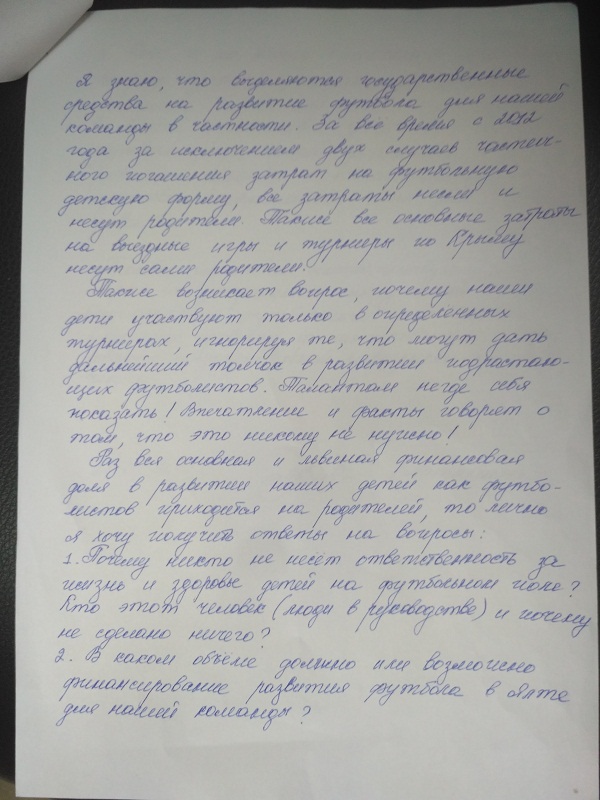 Я знаю, что выделяются государственные
средства на развитие футбола для нашей
команды в частности. За всё время с 2012
года за исключением двух случаев частич-
ного погашения затрат на футбольную
детскую форму, все затраты несли и
несут родители. Также все основные затраты
на выездные игры и турниры по Крыму
несут сами родители.
Также возникает вопрос, почему наши
дети участвуют только в определенных
турнирах, игнорируя те, что могут дать
дальнейший толчок в развитии подрастаю-
щих футболистов. Талантам негде себя
показать! Впечатление и факты говорят о
том, что это никому не нужно!
Раз вся основная и львиная финансовая
доля в развитии наших детей как футбо-
листов приходится на родителей, то лично
я хочу получить ответы на вопросы:
1. Почему никто не несёт ответственность за
жизнь и здоровье детей на футбольном поле?
Кто этот человек (люди в руководстве) и почему
не сделано ничего?
2. В каком объёме должно или возможно
финансирование развития футбола в Ялте
для нашей команды?